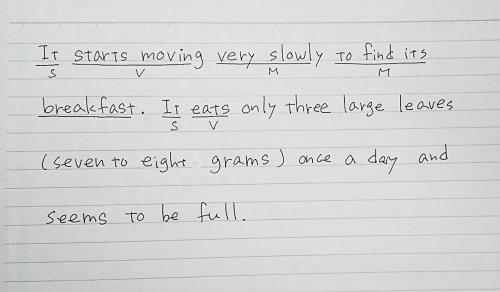 It starts moving very slowly to find its
S V M M
breakfast. It eats only three large leaves
S V
(seven to eight grams) once a day and
seems to be full.